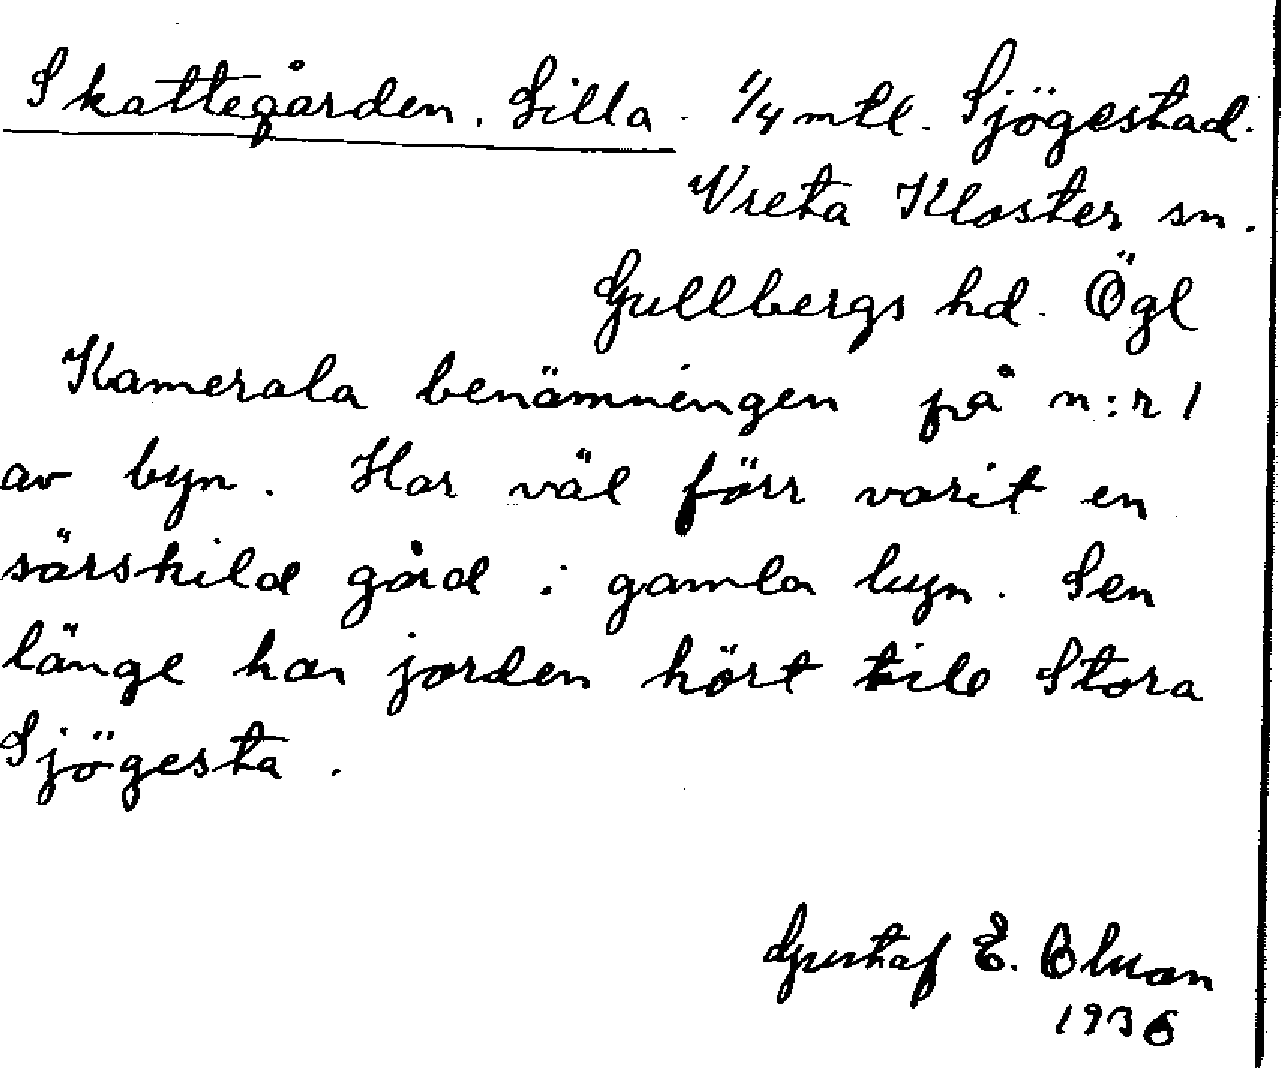 Skattegården. Lilla. 1/4 mtl. Sjögestad.
Vreta Kloster sn.
Gullbergs hd. Ögl
Kamerala benämningen på n:r 1
av byn. Har väl förr varit en
särskild gård i gamla byn. Sen
länge har jorden hört till Stora
Sjögesta.
Gustaf E.
1936